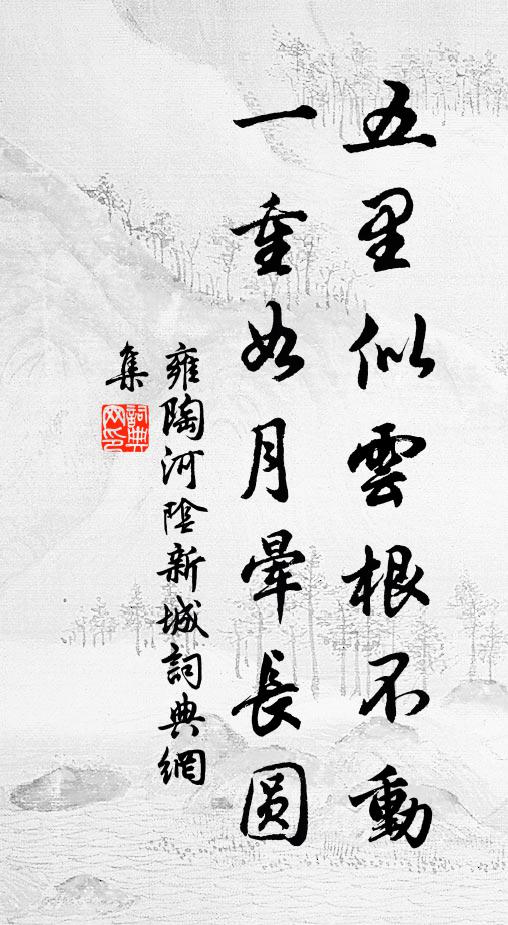 五里似雲根不動
一重如月暈長圆
雍陶河陰新城詞典網
集
詞典
网印